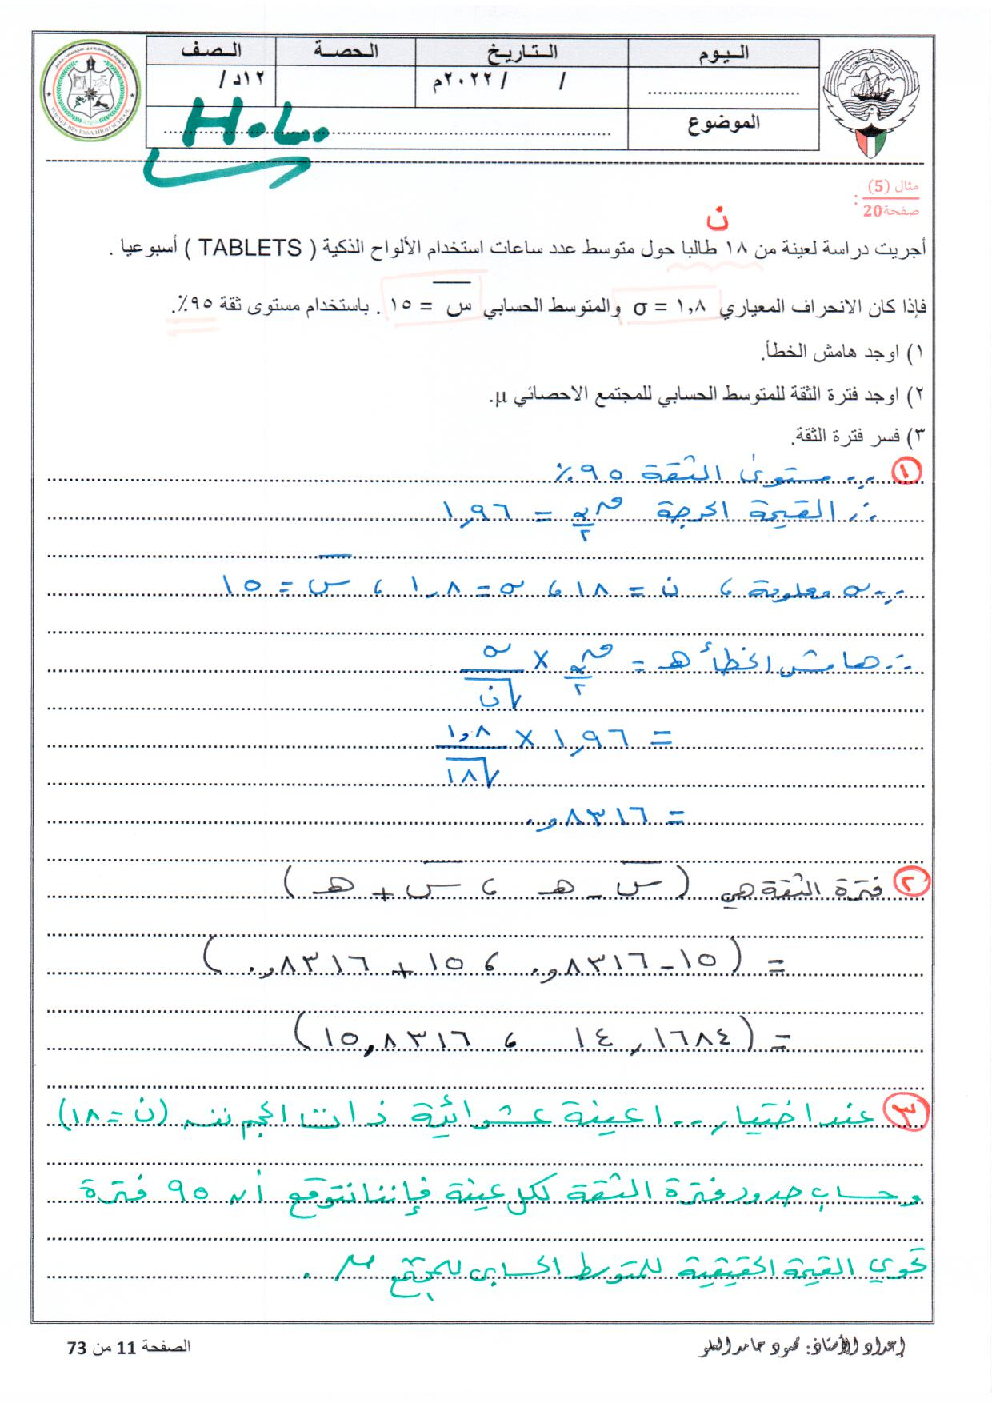 اليوم
التاريخ
الحصة
الصف
/ / ٢٠٢٢م
١٢د /
الموضوع
H.L.
مثال (5)
صفحة20 :
ن
أجريت دراسة لعينة من ١٨ طالبا حول متوسط عدد ساعات استخدام الألواح الذكية ( TABLETS ) أسبوعيا .
فإذا كان الانحراف المعياري σ = ١,٨ والمتوسط الحسابي س̅ = ١٥ . باستخدام مستوى ثقة ٩٥٪.
١) اوجد هامش الخطأ.
٢) اوجد فترة الثقة للمتوسط الحسابي للمجتمع الاحصائي µ.
٣) فسر فترة الثقة.
١ ∵ مستوى الثقة ٩٥٪
∴ القيمة الحرجة ق α/٢ = ١,٩٦
∵ σ معلومة ، ن = ١٨ ، σ = ١,٨ ، س̅ = ١٥
∴ هامش الخطأ هـ = ق α/٢ × σ/√ن
= ١,٩٦ × ١,٨/√١٨
= ٠,٨٣١٦
٢ فترة الثقة هي ( س̅ - هـ ، س̅ + هـ )
= ( ١٥ - ٠,٨٣١٦ ، ١٥ + ٠,٨٣١٦ )
= ( ١٤,١٦٨٤ ، ١٥,٨٣١٦ )
٣ عند اختيار ١٠٠ عينة عشوائية ذات الحجم نفسه (ن = ١٨)
وحساب حدود فترة الثقة لكل عينة فإننا نتوقع أن ٩٥ فترة
تحوي القيمة الحقيقية للمتوسط الحسابي للمجتمع µ .
إعداد الأستاذ: محمود حامد العلو
الصفحة 11 من 73